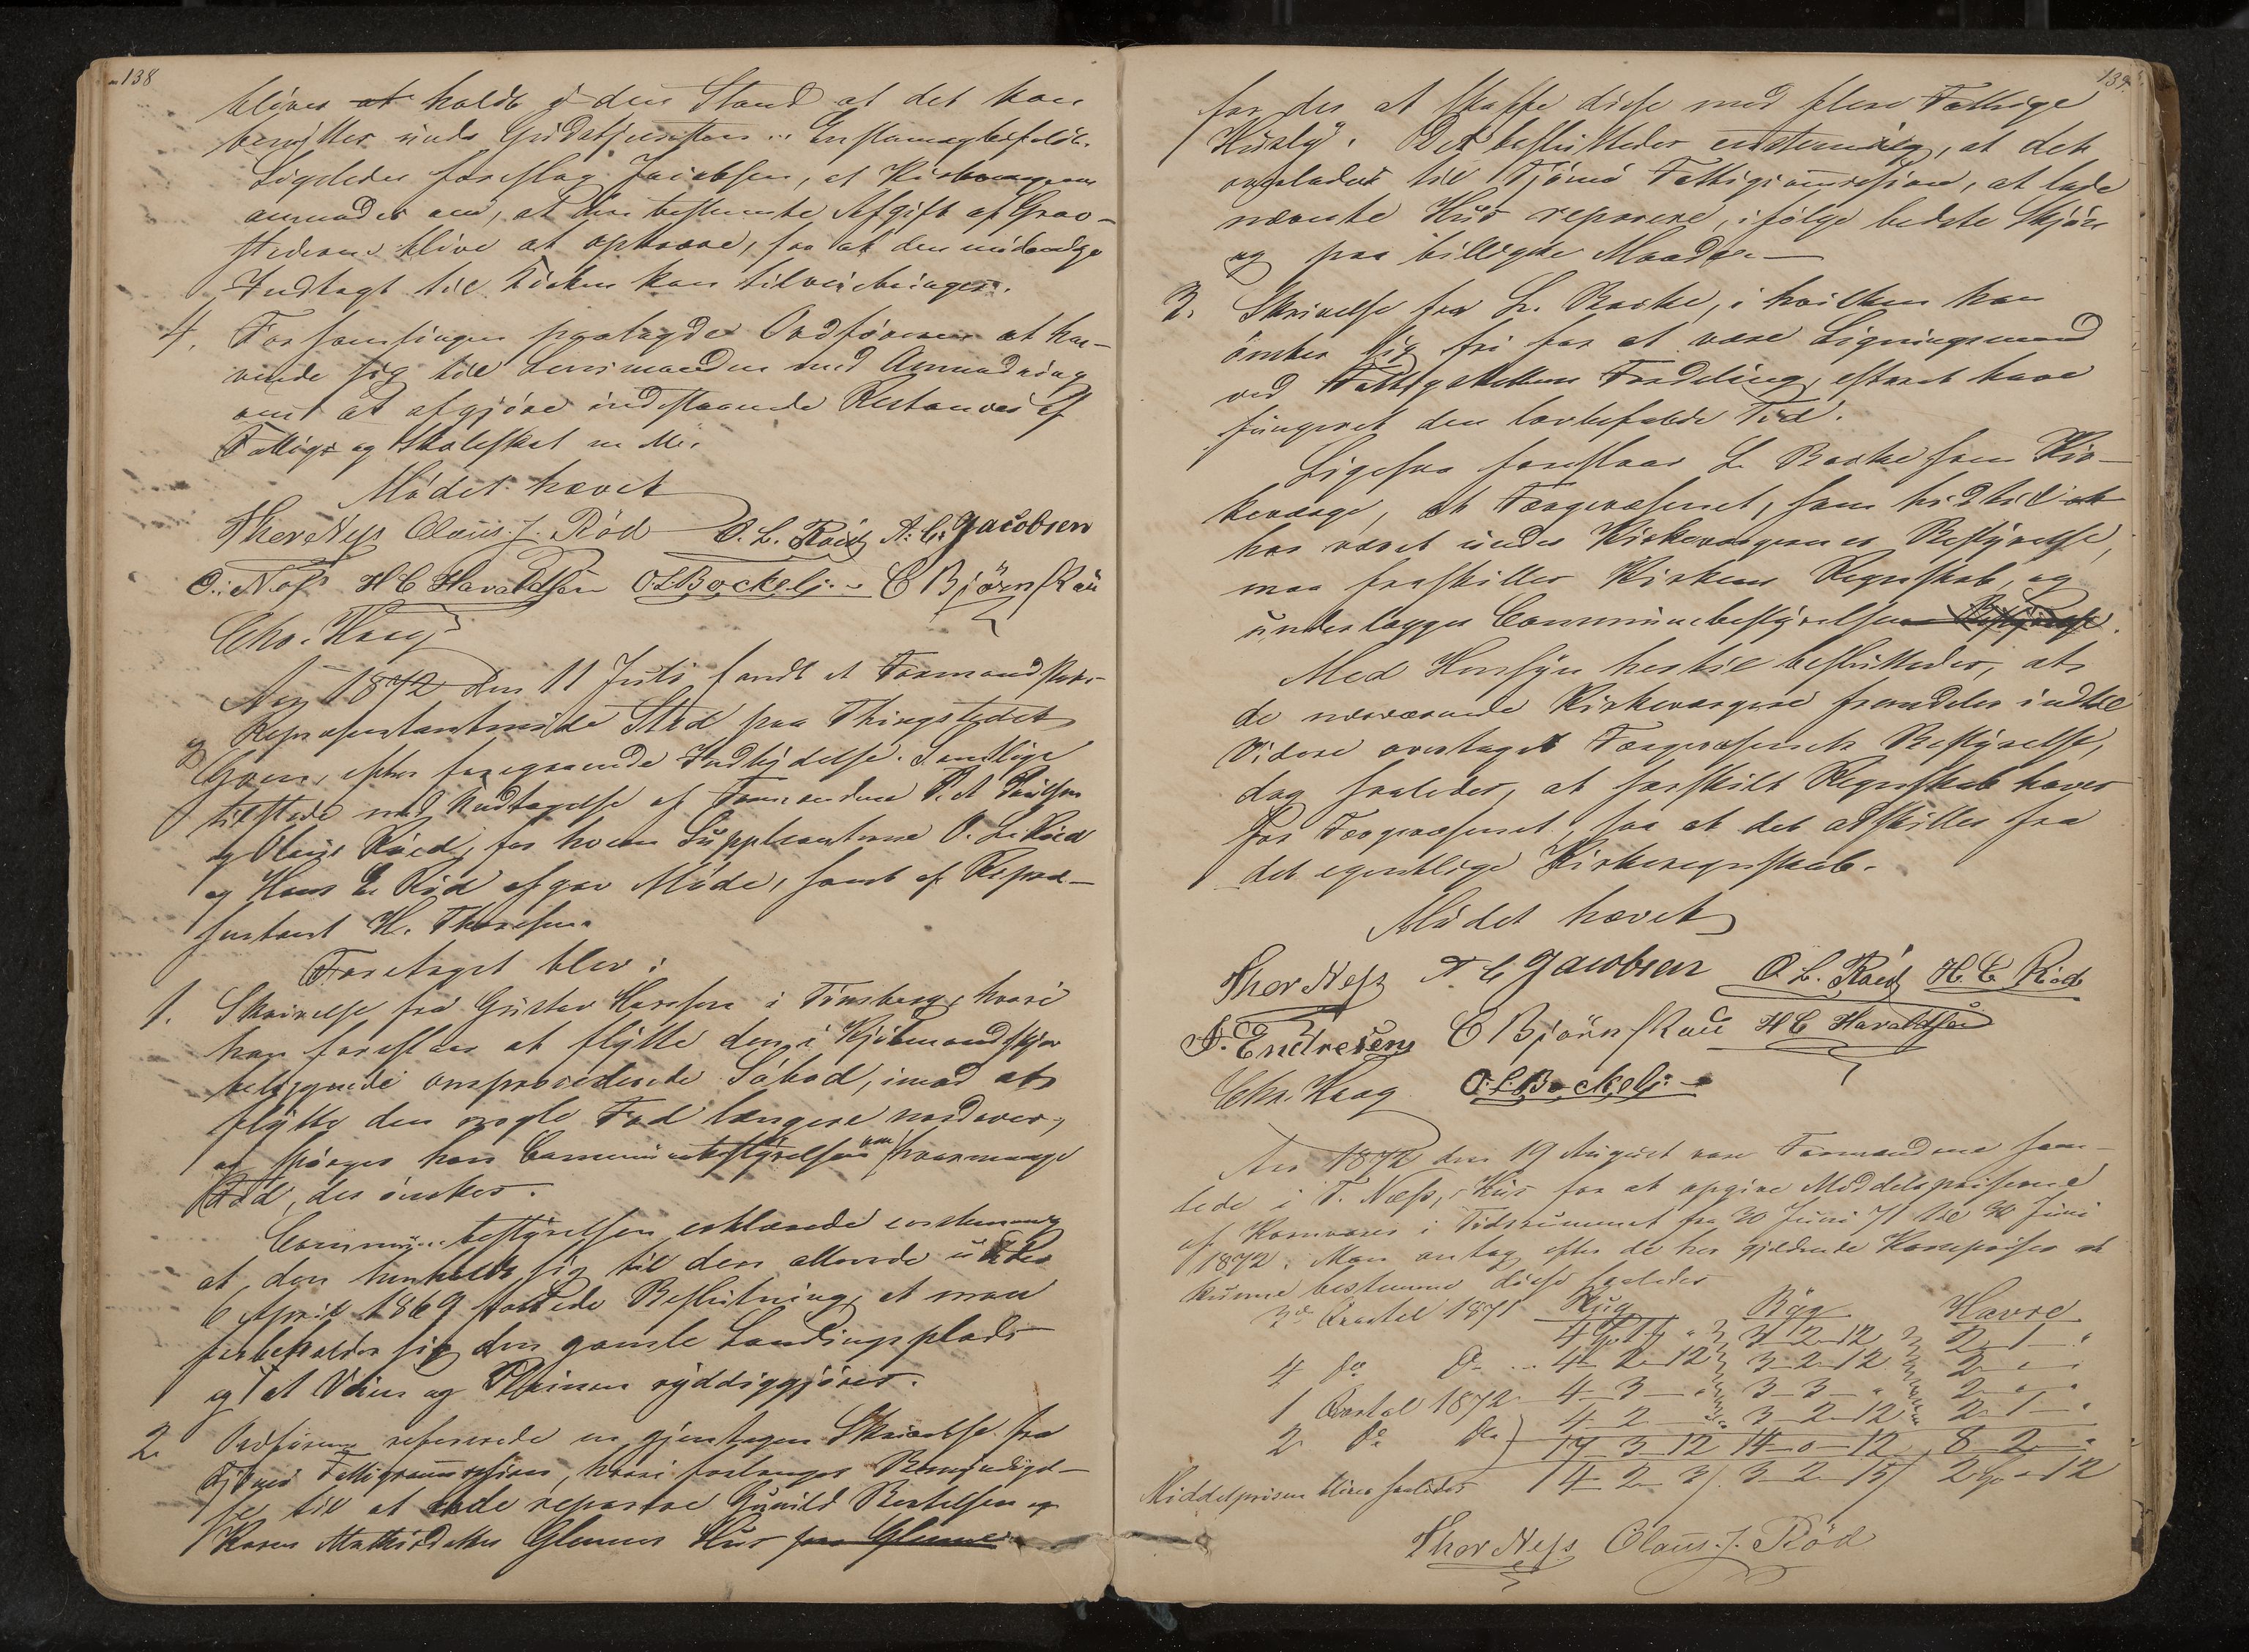 138
bliver at holdt i den Stand at det kan
benyttes under Gudstjenesten. Enstemmig bifaldt.
Ligeledes foreslog Jacobsen, at Kirkeværgerne
anmodes om, at den bestemte Afgift af Grav-
stederne blive at opkræve, saa at den nødvendige
Indtægt til Kirken kan tilveiebringes.
4. Forsamlingen paalagde Ordføreren at hen-
vende sig til Lensmanden med Anmodning
om at afgjøre indestaaende Restancer af
Fattig- og Skoleskat m. M.
Mødet hævet
Thor Ness Olaus J. Röd O. L. Röed A. C. Jacobsen
O. Ness H C Havaldsen O L Bockeli C Björnskau
Chr. Haag
Aar 1872 den 11 Juli, fandt et Formandskabs-
og Repræsentantmøde Sted paa Thingstedet
Goen, efter foregaaende Indbydelse. Samtlige
tilstede med Undtagelse af Formændene
og Olaus Röed, for hvem Suppleanterne O. L. Röed
og Hans E. Röd afgav Møde, samt af Repræ-
sentant H. Thoresen.
Foretaget blev:
1. Skrivelse fra Gustav Hansen i Tönsberg, hvori
han foreslaar at flytte den i Kjöbmandskjær
beliggende Söbod, imod at
flytte den nogle Fod længere nordover,
og spörges han Communebestyrelsen om hvormange
Fod, der önskes.
Communebestyrelsen erklærede enstemmig
at den henholdt sig til den allerede under
6 April 1869 fattede Beslutning, at man
forbeholder sig den gamle Landingsplads
og at Veien og Pladsen ryddiggjöres.
2. Ordföreren refererede en gjentagen Skrivelse fra
Tjømø Fattigcommission, hvori forlanges Bemyndigel-
se til at lade reparere Gunild Bertelsen og
Karen Mathisdatter Glennes Hus paa Glenne
139.
for der at skaffe disse med flere Fattige
Husly. Det besluttedes enstemmig, at det
overlades til Tjømø Fattigcommission, at lade
nævnte Hus reparere, ifölge bedste Skjön
og paa billigste Maade.
3. Skrivelse fra L. Backe, i hvilken han
önsker sig fri for at være Ligningsmand
ved Fattigskattens Fordeling, efterat have
fungeret den lovbefalede Tid.
Ligesaa foreslaar L. Backe som Kir-
keværge, at Færgevæsenet, som hidtil at
har været under Kirkeværgernes Bestyrelse,
maa fraskilles Kirkens Regnskab, og
underlægges Communebestyrelsen Bestyrelse.
Med Hensyn hertil besluttedes, at
de nuværende Kirkeværgere fremdeles indtil
Videre overtager Færgevæsenets Bestyrelse,
dog saaledes, at særskilt Regnskab haves
for Færgevæsenet, saa at det adskilles fra
det egentlige Kirkeregnskab.
Mødet hævet
Thor Ness A. C. Jacobsen O. L. Röed H. E. Röd
A. Endresen C Björnskau H C Havaldsen
Chr. Haag O. L. Bockeli
Aar 1872 den 19 August vare Formændene sam-
lede i T. Ness, Hus for at opgive Middelpriserne
af Kornvarer i Tidsrummet fra 30 Juni 71 til 30 Juni
1872. Man antog efter de her gjældende Kornpriser at
kunne bestemme disse saaledes
3die Qvartal 1871 Rug Byg Havre
4 Spd 1 " 3 2 12 2 1 "
4 do do 4 2 12 3 2 12 2 " "
1 Qvartal 1872 4 3 " 3 3 " 2 " "
2 do do 4 2 " 3 2 12 2 1 "
17 3 12 14 0 12 8 2 "
Middelprisen bliver saaledes 4 2 3 3 2 15 2 Spd " 12
Thor Ness Olaus. J. Röd